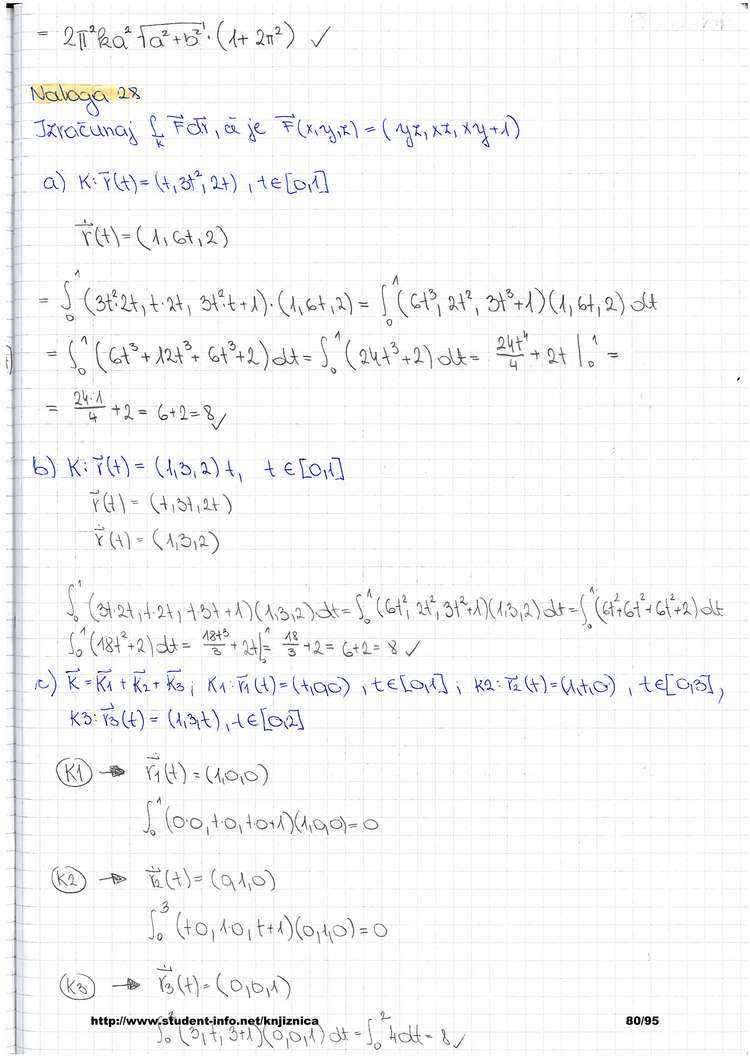 = 2π²ka² √(a²+b²) · (1+2π²) ✓
Naloga 28
Izračunaj ∫_K F⃗ dr⃗, če je F⃗(x,y,z) = (yz, xz, xy+1)
a) K: r⃗(t) = (t, 3t², 2t), t∈[0,1]
r⃗̇(t) = (1, 6t, 2)
= ∫₀¹ (3t²·2t, t·2t, 3t²·t+1)·(1,6t,2) = ∫₀¹ (6t³, 2t², 3t³+1)(1,6t,2) dt
= ∫₀¹ (6t³+12t³+6t³+2) dt = ∫₀¹ (24t³+2) dt = 24t⁴/4 + 2t |₀¹ =
= 24·1/4 + 2 = 6+2 = 8 ✓
b) K: r⃗(t) = (1,3,2) t, t∈[0,1]
r⃗(t) = (t,3t,2t)
r⃗̇(t) = (1,3,2)
∫₀¹ (3t·2t, t·2t, t·3t+1)(1,3,2) dt = ∫₀¹ (6t², 2t², 3t²+1)(1,3,2) dt = ∫₀¹ (6t²+6t²+6t²+2) dt
∫₀¹ (18t²+2) dt = 18t³/3 + 2t |₀¹ = 18/3 + 2 = 6+2 = 8 ✓
c) K⃗ = K⃗1 + K⃗2 + K⃗3; K1: r⃗1(t) = (t,0,0), t∈[0,1]; K2: r⃗2(t) = (1,t,0), t∈[0,3],
K3: r⃗3(t) = (1,3,t), t∈[0,2]
K1 → r⃗̇1(t) = (1,0,0)
∫₀¹ (0·0, t·0, t·0+1)(1,0,0) = 0
K2 → r⃗̇2(t) = (0,1,0)
∫₀³ (t·0, 1·0, t+1)(0,1,0) = 0
K3 → r⃗̇3(t) = (0,0,1)
∫₀² (3, t, 3+1)(0,0,1) dt = ∫₀² 4dt = 8 ✓
http://www.student-info.net/knjiznica 80/95